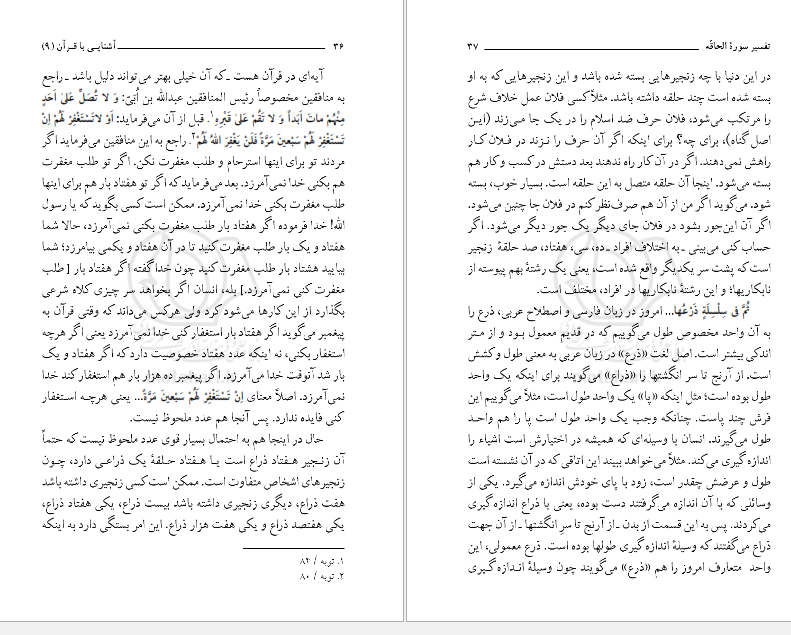 ۳۶ آشنایی با قرآن (۹)
آیه‌ای در قرآن هست ـ که آن خیلی بهتر می‌تواند دلیل باشد ـ راجع
به منافقین مخصوصاً رئیس المنافقین عبدالله بن اُبَیّ: وَ لا تُصَلِّ عَلىٰ اَحَدٍ
مِنْهُمْ ماتَ اَبَداً وَ لا تَقُمْ عَلىٰ قَبْرِهِ۱. قبل از آن می‌فرماید: اَوْ لاتَسْتَغْفِرْ لَهُمْ اِنْ
تَسْتَغْفِرْ لَهُمْ سَبْعینَ مَرَّةً فَلَنْ یَغْفِرَ اللهُ لَهُمْ۲. راجع به این منافقین می‌فرماید اگر
مردند تو برای اینها استرحام و طلب مغفرت نکن. اگر تو طلب مغفرت
هم بکنی خدا نمی‌آمرزد. بعد می‌فرماید که اگر تو هفتاد بار هم برای اینها
طلب مغفرت بکنی خدا نمی‌آمرزد. ممکن است کسی بگوید که یا رسول
الله! خدا فرموده اگر هفتاد بار طلب مغفرت بکنی نمی‌آمرزد، حالا شما
هفتاد و یک بار طلب مغفرت کنید تا در آن هفتاد و یکمی بیامرزد؛ شما
بیایید هشتاد بار طلب مغفرت کنید چون خدا گفته اگر هفتاد بار [ طلب
مغفرت کنی نمی‌آمرزد.] بله، انسان اگر بخواهد سر چیزی کلاه شرعی
بگذارد از این کارها می‌شود کرد ولی هرکس می‌داند که وقتی قرآن به
پیغمبر می‌گوید اگر هفتاد بار استغفار کنی خدا نمی‌آمرزد یعنی اگر هرچه
استغفار بکنی، نه اینکه عدد هفتاد خصوصیت دارد که اگر هفتاد و یک
بار شد آنوقت خدا می‌آمرزد. اگر پیغمبر ده هزار بار هم استغفار کند خدا
نمی‌آمرزد. اصلاً معنای اِنْ تَسْتَغْفِرْ لَهُمْ سَبْعینَ مَرَّةً... یعنی هرچه استغفار
کنی فایده ندارد. پس آنجا هم عدد ملحوظ نیست.
حال در اینجا هم به احتمال بسیار قوی عدد ملحوظ نیست که حتماً
آن زنجیر هفتاد ذراع است یا هفتاد حلقهٔ یک ذراعی دارد، چون
زنجیرهای اشخاص متفاوت است. ممکن است کسی زنجیری داشته باشد
هفت ذراع، دیگری زنجیری داشته باشد بیست ذراع، یکی هفتاد ذراع،
یکی هفتصد ذراع و یکی هفت هزار ذراع. این امر بستگی دارد به اینکه
۱. توبه / ۸۴
۲. توبه / ۸۰
تفسیر سورهٔ الحاقّه ۳۷
در این دنیا با چه زنجیرهایی بسته شده باشد و این زنجیرهایی که به او
بسته شده است چند حلقه داشته باشد. مثلاً کسی فلان عمل خلاف شرع
را مرتکب می‌شود، فلان حرف ضد اسلام را در یک جا می‌زند (این
اصل گناه)، برای چه؟ برای اینکه اگر آن حرف را نزند در فلان کار
راهش نمی‌دهند. اگر در آن کار راه ندهند بعد دستش در کسب و کار هم
بسته می‌شود. اینجا آن حلقه متصل به این حلقه است. بسیار خوب، بسته
شود. می‌گوید اگر من از آن هم صرف‌نظر کنم در فلان جا چنین می‌شود.
اگر آن این‌جور بشود در فلان جای دیگر یک جور دیگر می‌شود. اگر
حساب کنی می‌بینی ـ به اختلاف افراد ـ ده، سی، هفتاد، صد حلقهٔ زنجیر
است که پشت سر یکدیگر واقع شده است، یعنی یک رشتهٔ بهم پیوسته از
نابکاریها؛ و این رشتهٔ نابکاریها در افراد، مختلف است.
ثُمَّ فی سِلْسِلَةٍ ذَرْعُها... امروز در زبان فارسی و اصطلاح عربی، ذرع را
به آن واحد مخصوص طول می‌گوییم که در قدیم معمول بود و از متر
اندکی بیشتر است. اصل لغت «ذرع» در زبان عربی به معنی طول و کشش
است. از آرنج تا سر انگشتها را «ذراع» می‌گویند برای اینکه یک واحد
طول بوده است؛ مثل اینکه «پا» یک واحد طول است، مثلاً می‌گوییم این
فرش چند پاست. چنانکه وجب یک واحد طول است پا را هم واحد
طول می‌گیرند. انسان با وسیله‌ای که همیشه در اختیارش است اشیاء را
اندازه گیری می‌کند. مثلاً می‌خواهد ببیند این اتاقی که در آن نشسته است
طول و عرضش چقدر است، زود با پای خودش اندازه می‌گیرد. یکی از
وسائلی که با آن اندازه می‌گرفتند دست بوده، یعنی با ذراع اندازه گیری
می‌کردند. پس به این قسمت از بدن ـ از آرنج تا سرِ انگشتها ـ از آن جهت
ذراع می‌گفتند که وسیلهٔ اندازه گیری طولها بوده است. ذرع معمولی، این
واحد متعارف امروز را هم «ذرع» می‌گویند چون وسیلهٔ اندازه گیری